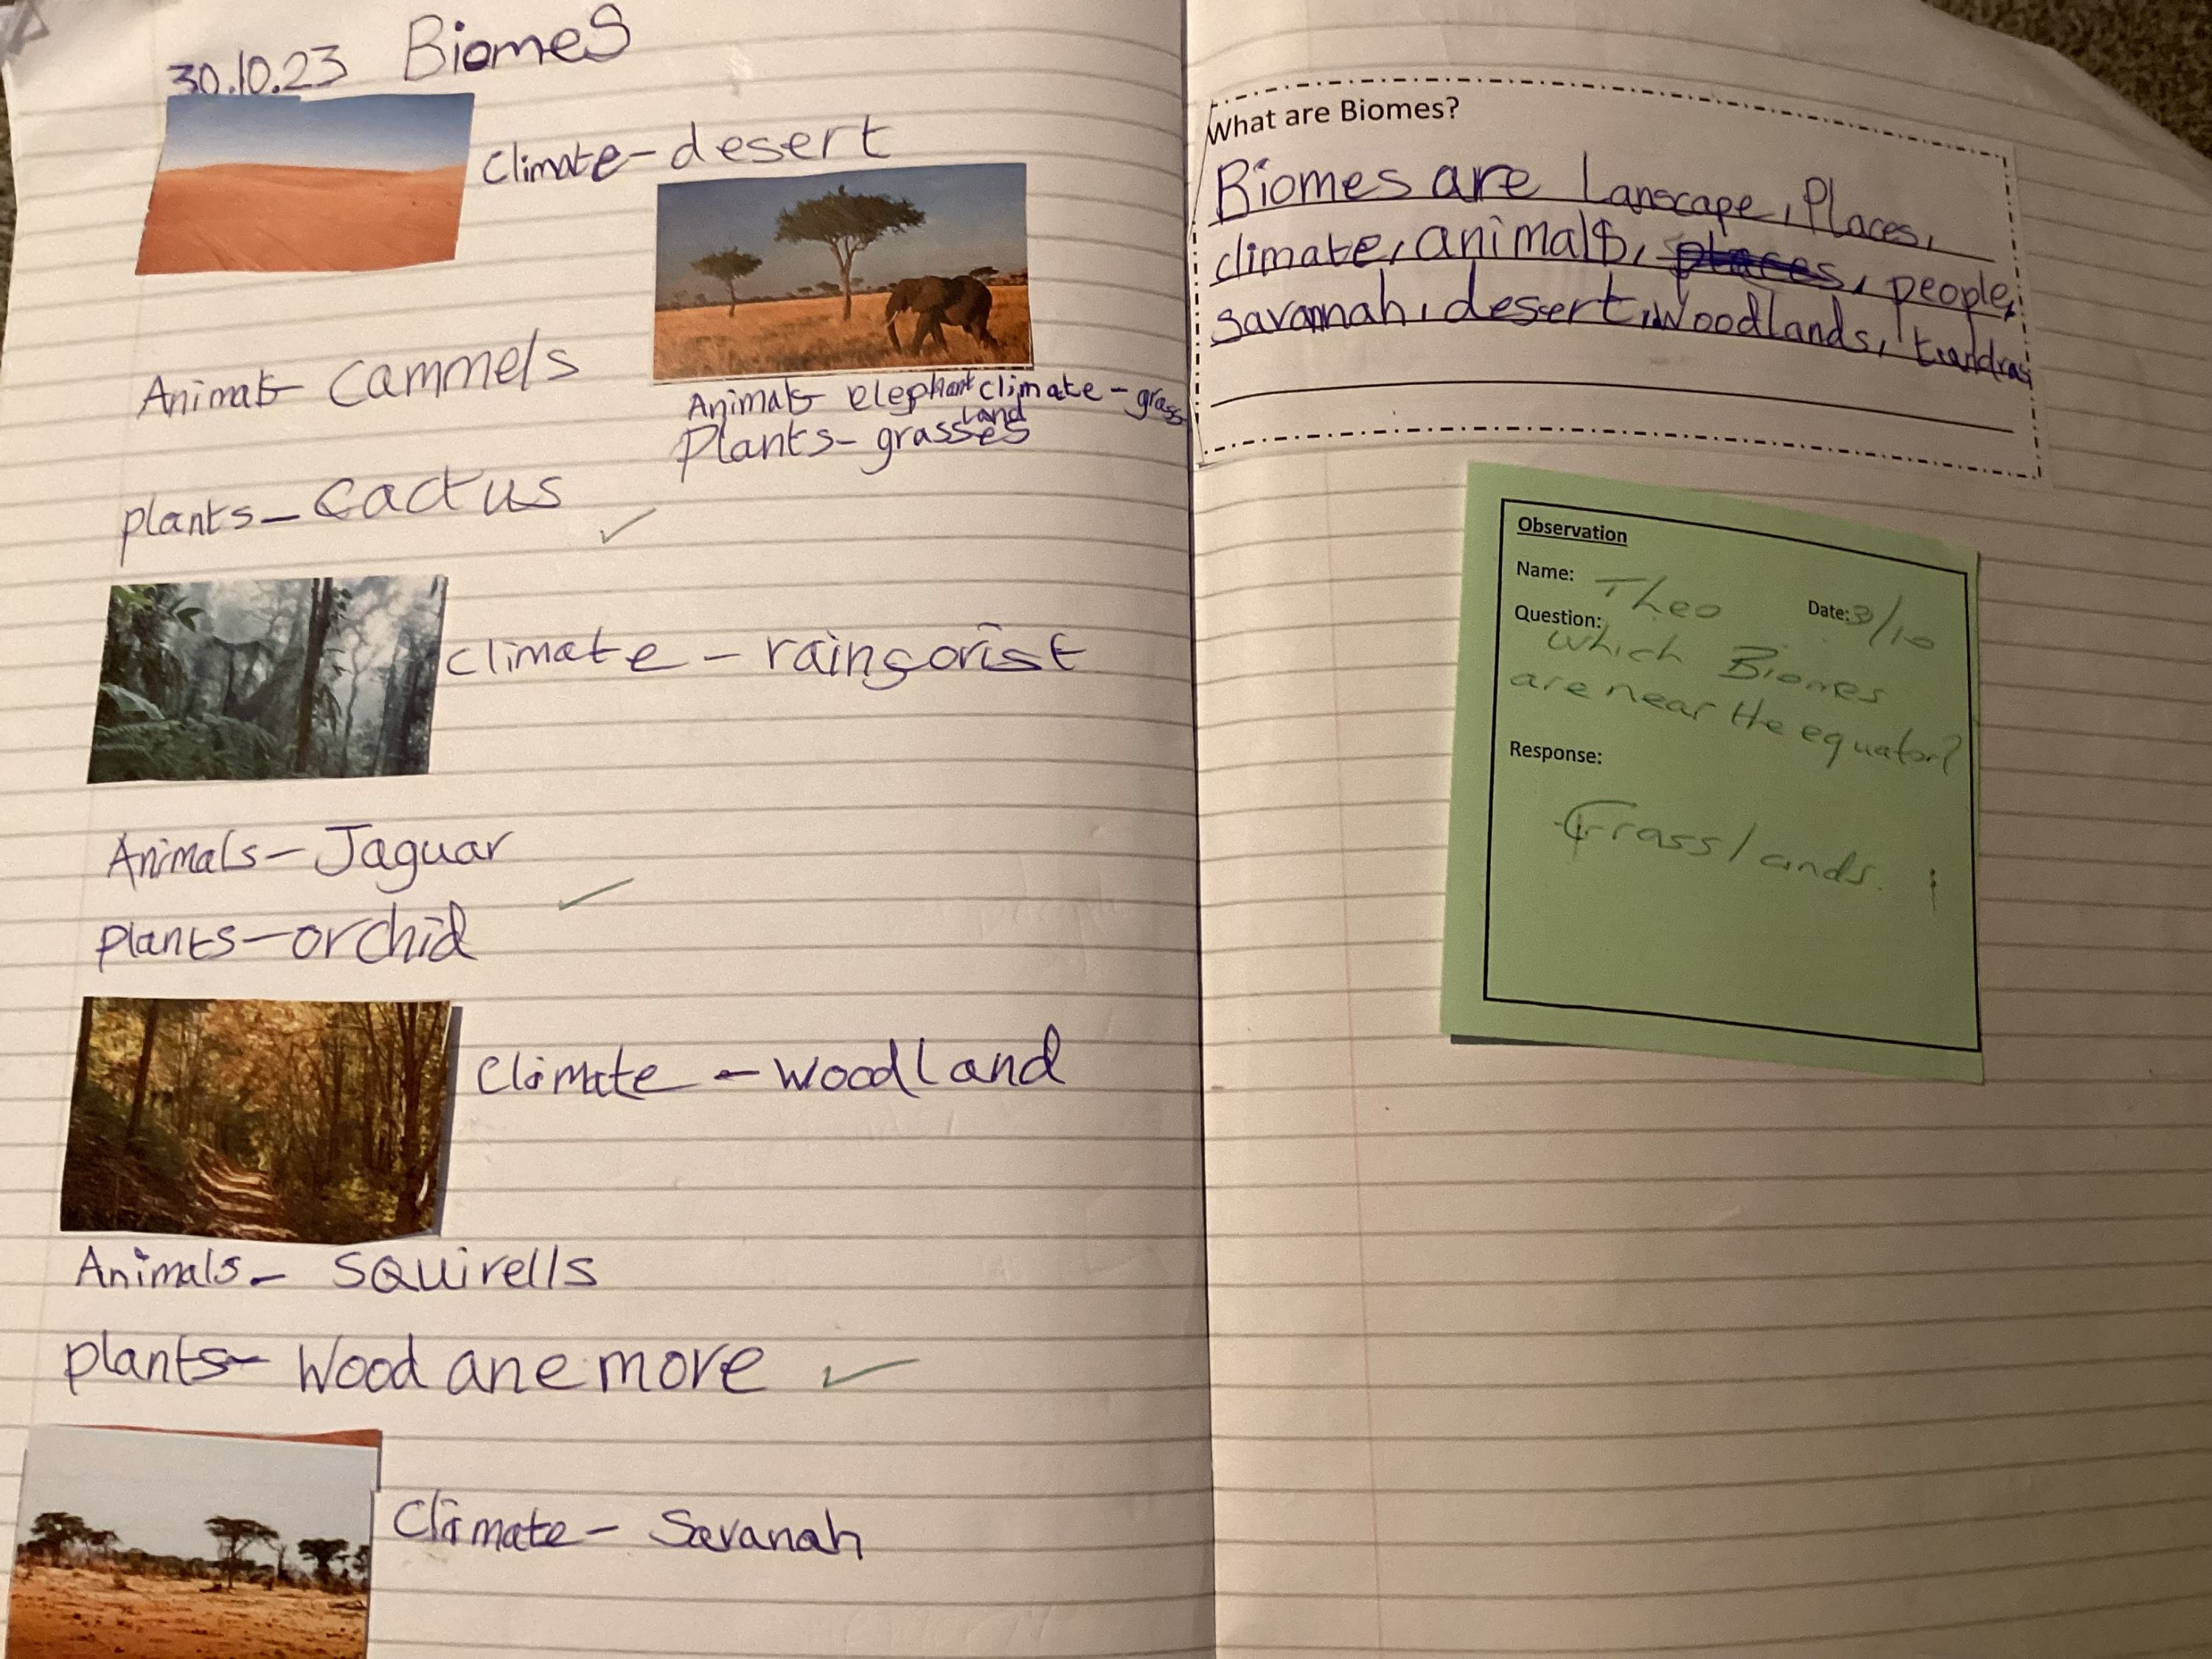 30.10.23 Biomes
Climate - desert
Animals - Cammels
Animals - elephant climate - grass
land
Plants - grasses
plants - cactus
climate - rainforist
Animals - Jaguar
plants - orchid
Climate - woodland
Animals - squirells
plants - Wood anemore
Climate - Savanah
What are Biomes?
Biomes are Lanscape, Places,
climate, animals, places, people,
savannah, desert, Woodlands, tundras
Observation
Name: Theo Date: 3/10
Question:
which Biomes
are near the equator?
Response:
Grasslands.